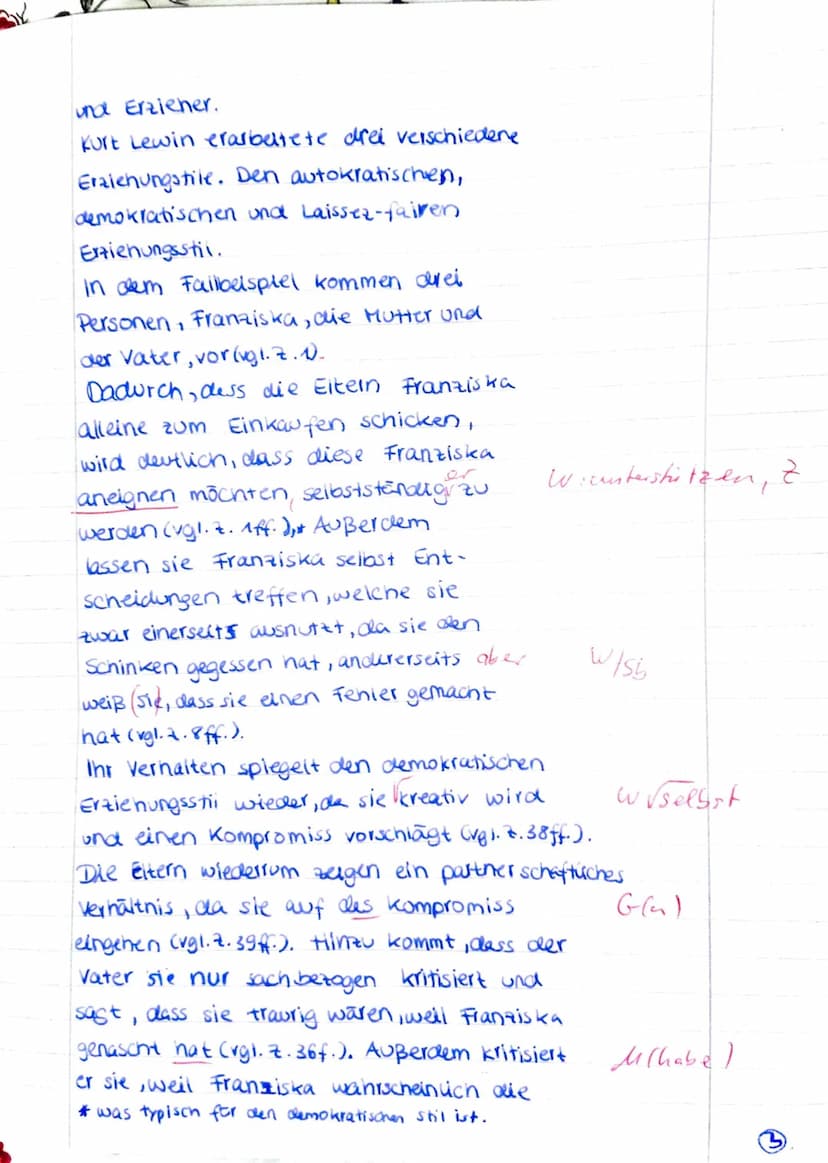 und Erzieher.
Kurt Lewin erarbeitete drei verschiedene
Erziehungstile. Den autokratischen,
demokratischen und Laissez-fairen
Erziehungsstil.
In dem Fallbeispiel kommen drei
Personen, Franziska, die Mutter und
der Vater, vor (vgl. Z. 1).
Dadurch, dass die Eltern Franziska
alleine zum Einkaufen schicken,
wird deutlich, dass diese Franziska
er
aneignen möchten, selbstständig zu W: unterstützen, Z
werden (vgl. Z. 1ff.),* Außerdem
lassen sie Franziska selbst Ent-
scheidungen treffen, welche sie
zwar einerseits ausnutzt, da sie den
Schinken gegessen hat, andererseits aber W/Sb
weiß (sie), dass sie einen Fehler gemacht
hat (vgl. Z. 8ff.).
Ihr Verhalten spiegelt den demokratischen
Erziehungsstil wieder, da sie √kreativ wird W √selbst
und einen Kompromiss vorschlägt (vgl. Z. 38ff.).
Die Eltern wiederrum zeigen ein partnerschaftliches
Verhältnis, da sie auf das Kompromiss G(n)
eingehen (vgl. Z. 39ff.). Hinzu kommt, dass der
Vater sie nur sachbezogen kritisiert und
sagt, dass sie traurig wären, weil Franziska
genascht hat (vgl. Z. 36f.). Außerdem kritisiert M(habe)
er sie, weil Franziska wahrscheinlich die
* was typisch für den demokratischen Stil ist.
3